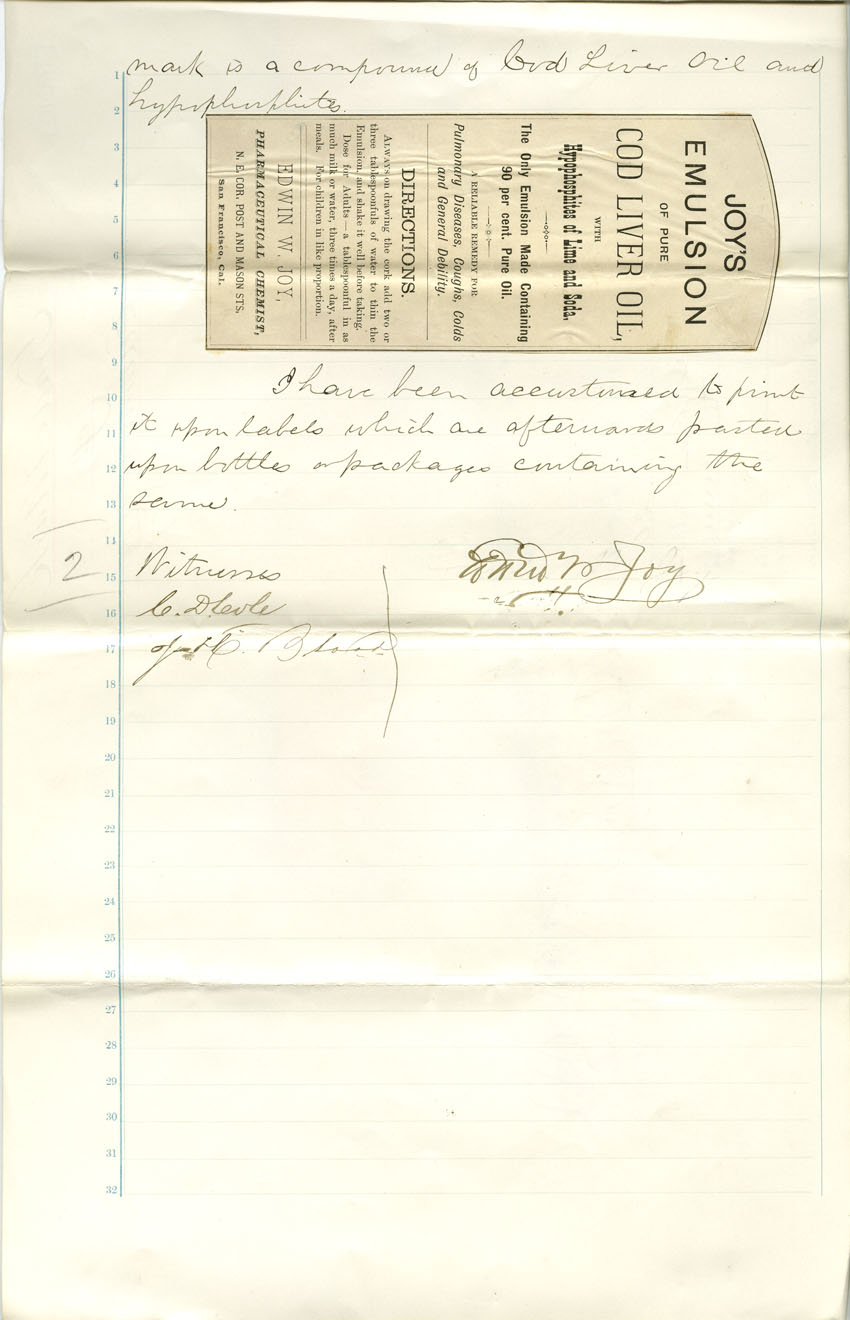 mark is a compound of Cod Liver Oil and
hypophosphites.
JOY'S
EMULSION
OF PURE
COD LIVER OIL,
WITH
Hypophosphites of Lime and Soda.
The Only Emulsion Made Containing
90 per cent. Pure Oil.
A RELIABLE REMEDY FOR
Pulmonary Diseases, Coughs, Colds
and General Debility.
DIRECTIONS.
ALWAYS on drawing the cork add two or
three tablespoonfuls of water to thin the
Emulsion, and shake it well before taking.
Dose for Adults—a tablespoonful in as
much milk or water, three times a day, after
meals. For children in like proportion.
EDWIN W. JOY,
PHARMACEUTICAL CHEMIST,
N. E. COR. POST AND MASON STS.
San Francisco, Cal.
I have been accustomed to print
it upon labels which are afterwards pasted
upon bottles or packages containing the
same.
Edwin W Joy
2
Witnesses
C. D. Cole
J. H. Blood
1
2
3
4
5
6
7
8
9
10
11
12
13
14
15
16
17
18
19
20
21
22
23
24
25
26
27
28
29
30
31
32